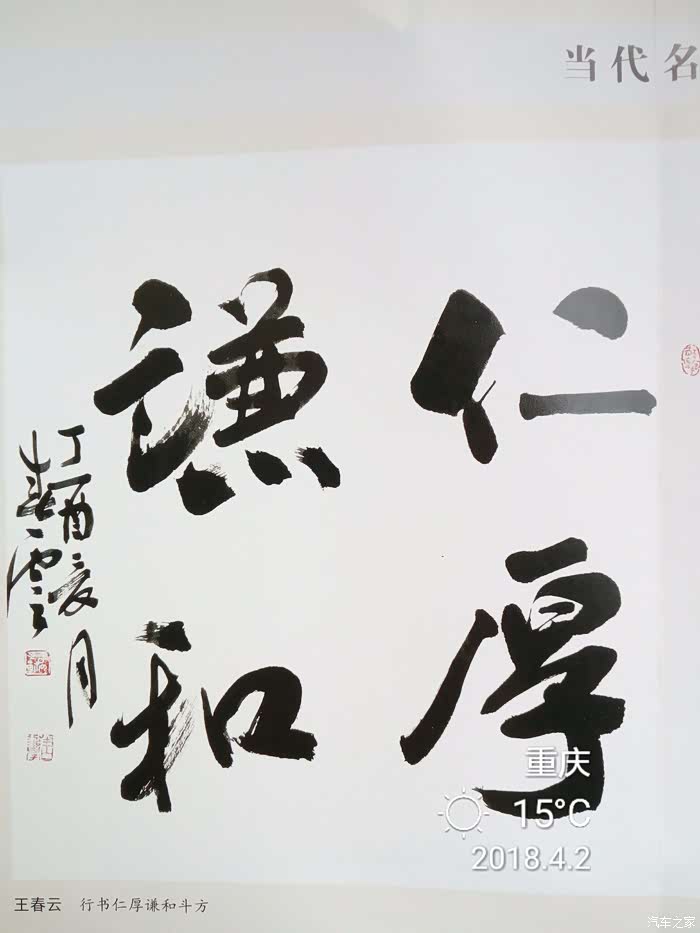 当代名
仁厚
谦和
丁酉夏月
春云
重庆
15°C
2018.4.2
王春云 行书仁厚谦和斗方
汽车之家